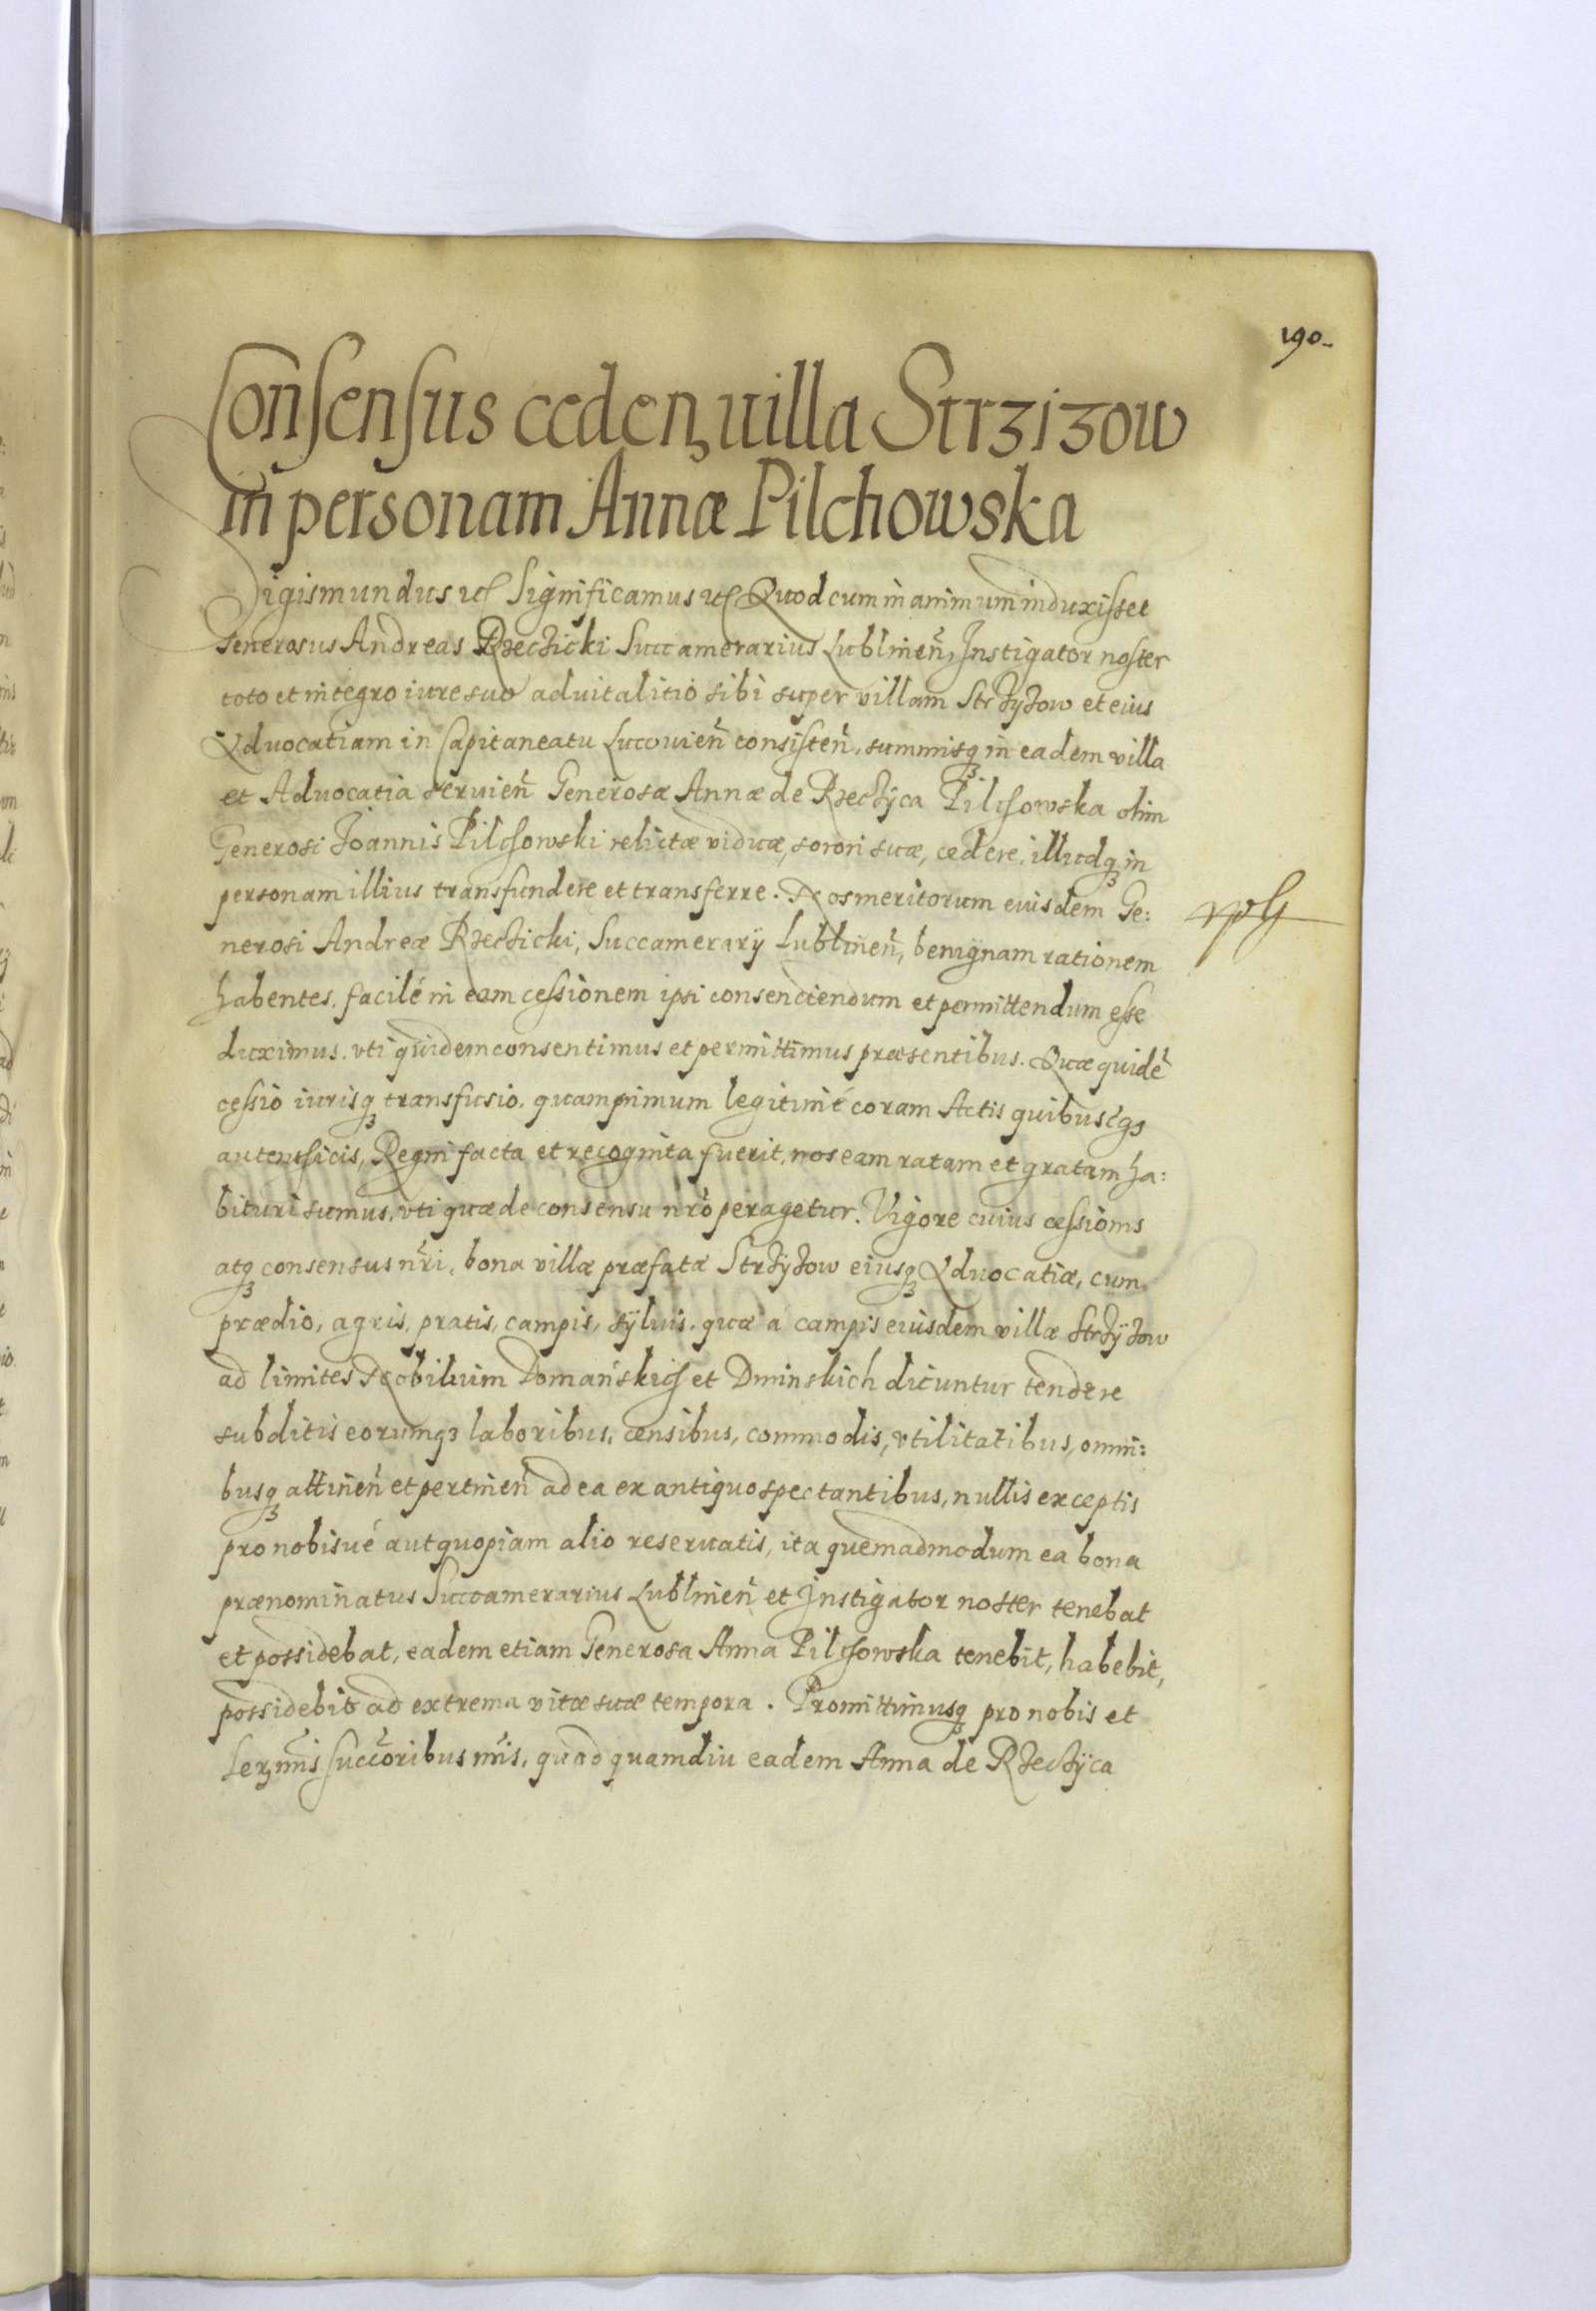 190.
Consensus ceden, uilla Strzizow
in personam Annæ Pilchowska
Sigismundus etc Significamus etc Quod cum in animum induxisset
Generosus Andreas Rzeczicki Succamerarius Lublineñ, Instigator noster
toto et integro iure suo aduitalitio sibi super villam Strzyżow et eius
Aduocatiam in Capitaneatu Lucouieñ consisteñ, summisq in eadem villa
et Aduocatia seruieñ Generosæ Annæ de Rzeczÿca Pilchowska olim
Generosi Joannis Pilchowski relictæ viduæ, sorori suæ, cedere, illudq in
personam illius transfundere et transferre. Nos meritorum eiusdem Ge:
nerosi Andreæ Rzeczicki, Succamerarÿ Lublineñ, benignam rationem
habentes, facilé in eam cessionem ipsi consentiendum et permittendum esse
duximus, vti quidem consentimus et permittimus præsentibus. Quæ quidẽ
cessio iurisq transfusio, quamprimum legitimé coram Actis quibuscqs
autenthicis, Regni facta et recognita fuerit, nos eam ratam et gratam ha:
bituri sumus, vti quæ de consensu nrõ peragetur. Vigore cuius cessionis
atq consensus nri, bona villæ præfatæ Strzÿżow eiusq Aduocatiæ, cum
prædio, agris, pratis, campis, sÿluis, quæ a campis eiusdem villæ Strzÿżow
ad limites Nobilium Domańskich et Dminskich dicuntur tendere
subditis eorumq laboribus, censibus, commodis, vtilitatibus, omni:
busq attineñ et pertineñ ad ea ex antiquo spectantibus, nullis exceptis
pro nobisué aut quopiam alio reseruatis, ita quemadmodum ea bona
prænominatus Succamerarius Lublineñ et Instigator noster tenebat
et possidebat, eadem etiam Generosa Anna Pilchowska tenebit, habebit,
possidebit ad extrema vitæ suæ tempora. Promittimusq pro nobis et
Sermis succoribus nris, quod quamdiu eadem Anna de Rzeczÿca